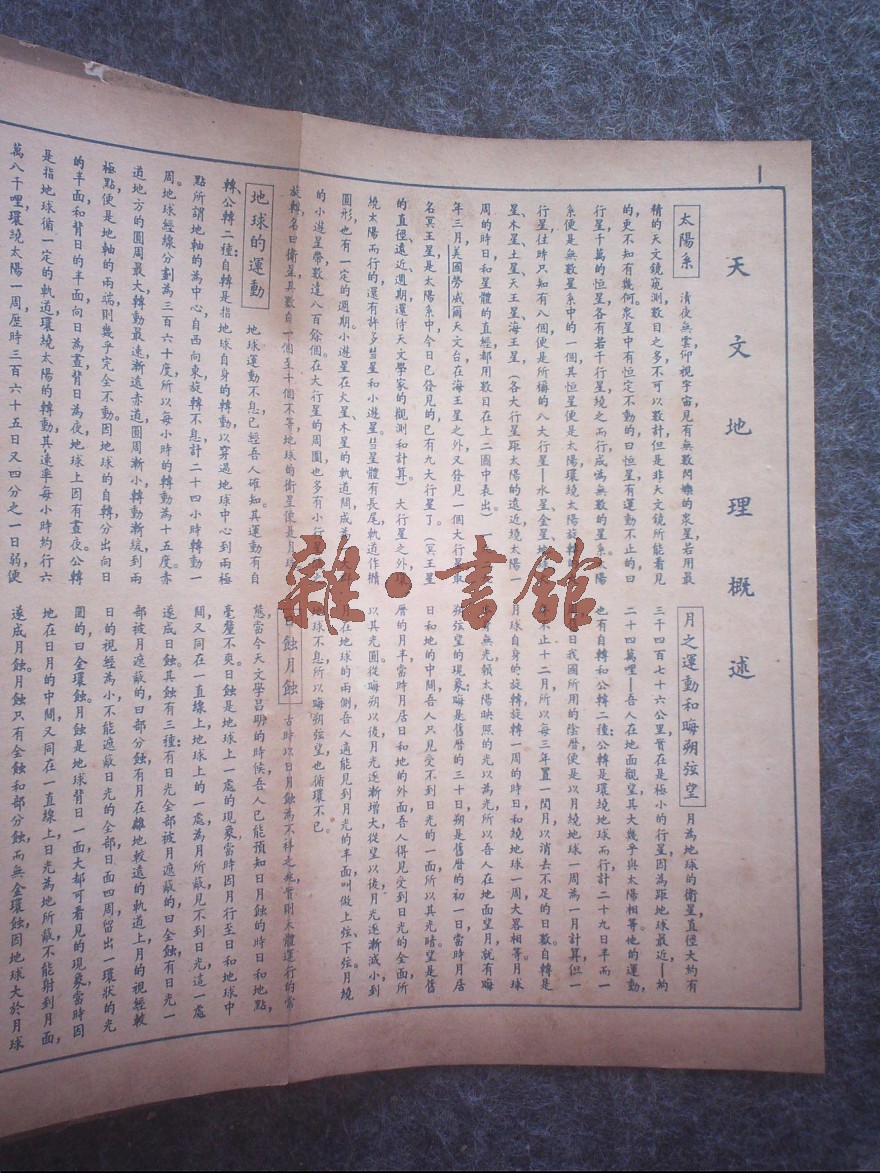 一
天文地理概述
太陽系
清夜無雲,仰視宇宙,見有無數閃爍的衆星,若用最
精的天文鏡窺測,數目之多不可以數計,但是非天文鏡所能看見
的,更不知有幾何。衆星中有恒定不動的,曰恒星,有運動不止的,曰
行星,千萬的恒星,各有若干行星繞之而行,成爲無數的星系。太陽
系便是無數星系中的一個,其恒星便是太陽,環繞太陽旋轉
行星,往時只知有八個,便是所稱的八大行星—水星、金星、地球
星、木星、土星、天王星、海王星,(各大行星距太陽的遠近,繞太陽一
周的時日,和星體的直徑,都用數目在上二圖中表出。)
年三月,美國勞威爾天文台,在海王星之外,又發見一個大行星,取
名冥王星,是太陽系中,今日已發見的已有九大行星了。(冥王星
的直徑,遠近,週期,還待天文學家的觀測和計算。)大行星之外,環
繞太陽而行的,還有許多彗星和小遊星。彗星體有長尾,軌道作橢
圓形,也有一定的週期。小遊星在火星、木星的軌道間,成爲
的小遊星帶,數達八百餘個。在大行星的周圍,也多有小行星
旋轉,名曰衛星,其數自一個至十個不等,地球的衛星便是月球。
地球的運動
地球運動不息,已經吾人確知。其運動有自
轉、公轉二種:自轉是指地球自身的轉動,以穿過地球中心到兩極
點所謂地軸的爲中心,自西向東,旋轉不息,計二十四小時轉動一
周。地球經線分劃爲三百六十度,所以每小時的轉動爲十五度。赤
道地方的圓周最大,轉動最速,漸遠赤道,圓周漸小,轉動漸緩,到兩
極點便是地軸的兩端,則幾乎完全不動。因地球的自轉,分出向日
的半面和背日的半面,向日爲晝,背日爲夜,地球上因有晝夜。公轉
是指地球循一定的軌道,環繞太陽的轉動,其速率每小時約行六
萬八千哩,環繞太陽一周,歷時三百六十五日又四分之一日弱,便
月之運動和晦朔弦望
月爲地球的衛星,直徑大約有
三千四百七十六公里,實在是極小的行星,因爲距地球最近—約
二十四萬哩—吾人在地面觀望,其大幾乎與太陽相等。他的運動,
也有自轉和公轉二種:公轉是環繞地球而行,計二十九日半而一
日,我國所用的陰曆,便是以月繞地球一周爲一月計算,但一
止十二月,所以每三年置一閏月,以消去不足的日數。自轉是
月球自身的旋轉,旋轉一周的時日,和繞地球一周大畧相等。月球
無光,賴太陽映照的光以爲光,所以吾人在地面望月,就有晦
朔弦望的現象。晦是舊曆的三十日,朔是舊曆的初一日,當時月居
日和地的中間,吾人只見受不到日光的一面,所以其光晦。望是舊
曆的月半,當時月居日和地的外面,吾人得見受到日光的全面,所
以其光圓。從晦朔以後,月光逐漸增大,從望以後,月光逐漸減小,到
在地球的兩側,吾人適能見到月光的半面,叫做上弦、下弦。月繞
地球不息,所以晦朔弦望也循環不已。
日蝕月蝕
古時以日月蝕爲不祥之兆,實則天體運行的常
態,當今天文學昌明的時候,吾人已能預知日月蝕的時日和地點,
毫釐不爽。日蝕是地球上一處的現象,當時因月行至日和地球中
間,又同在一直線上,地球上的一處爲月所蔽,見不到日光,這一處
遂成日蝕。其蝕有三種:有日光全部被月遮蔽的,曰全蝕,有日光一
部被月遮蔽的,曰部分蝕,有月在離地較遠的軌道上,月的視經較
日的視經爲小,不能遮蔽日光的全部,日面四周留出一環狀的光
圈的,曰金環蝕。月蝕是地球背日一面,大都可看見的現象,當時因
地在日月的中間,又同在一直線上,日光爲地所蔽,不能射到月面,
遂成月蝕。月蝕只有全蝕和部分蝕,而無金環蝕,因地球大於月球
雜·書館